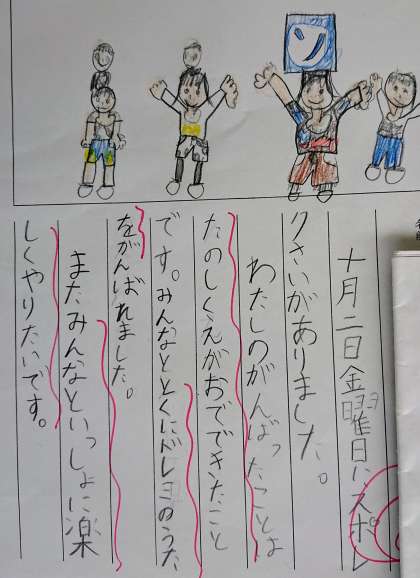 十月二日金曜日にスポレ
クさいがありました。
わたしのがんばったことは
たのしくえがおでできたこと
です。みんなととくにドレミのうた
をがんばれました。
またみんなといっしょに楽
しくやりたいです。